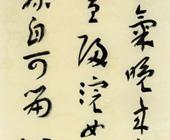 氣晚来
喧歸浣女
孫自可留